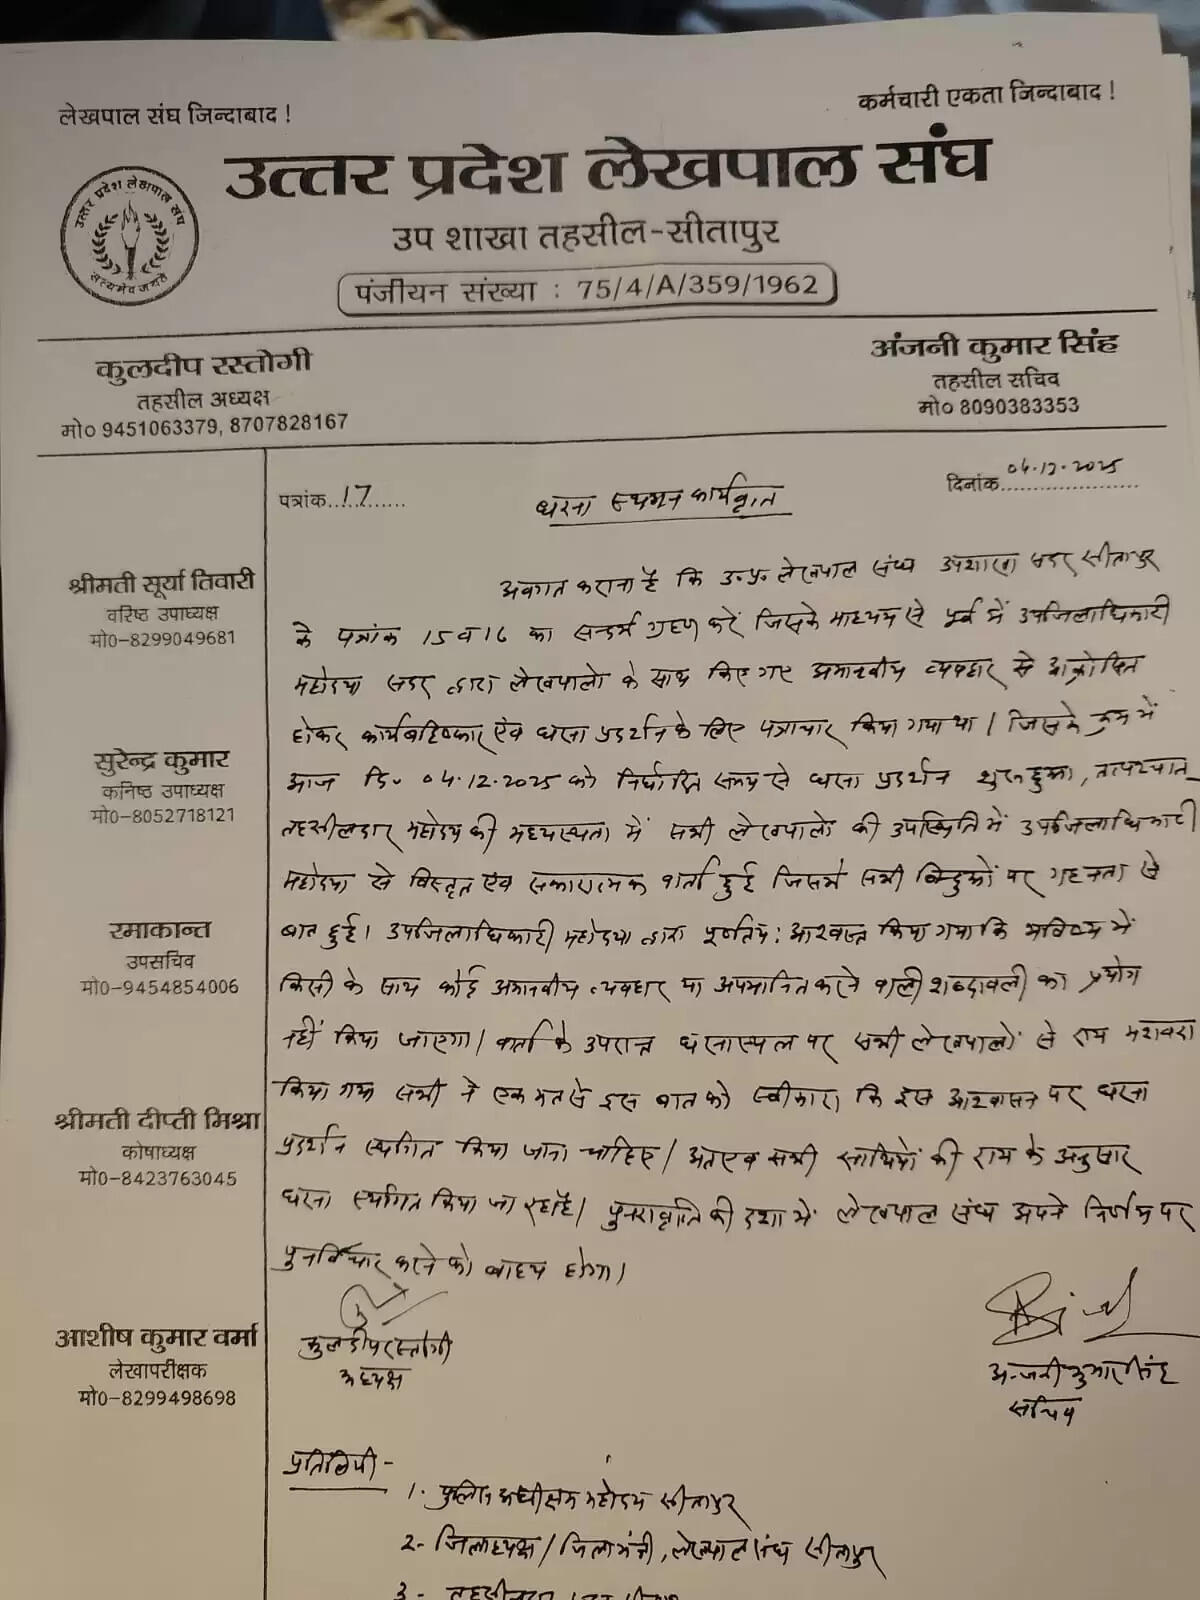 लेखपाल संघ जिन्दाबाद !
कर्मचारी एकता जिन्दाबाद !
उत्तर प्रदेश लेखपाल संघ
उत्तर प्रदेश लेखपाल संघ
सत्यमेव जयते
उप शाखा तहसील-सीतापुर
पंजीयन संख्या : 75/4/A/359/1962
कुलदीप रस्तोगी
तहसील अध्यक्ष
मो० 9451063379, 8707828167
अंजनी कुमार सिंह
तहसील सचिव
मो० 8090383353
पत्रांक..17......
दिनांक 04.12.2025
धरना स्थगन कार्यवृत्त
श्रीमती सूर्या तिवारी
वरिष्ठ उपाध्यक्ष
मो०-8299049681
सुरेन्द्र कुमार
कनिष्ठ उपाध्यक्ष
मो०-8052718121
रमाकान्त
उपसचिव
मो०-9454854006
श्रीमती दीप्ती मिश्रा
कोषाध्यक्ष
मो०-8423763045
आशीष कुमार वर्मा
लेखापरीक्षक
मो०-8299498698
अवगत कराना है कि उ०प्र० लेखपाल संघ उपशाखा सदर सीतापुर
के पत्रांक 15 व 16 का सन्दर्भ ग्रहण करें जिसके माध्यम से पूर्व में उपजिलाधिकारी
महोदया सदर द्वारा लेखपालो के साथ किए गए अमानवीय व्यवहार से आक्रोशित
होकर कार्यबहिष्कार एंव धरना प्रदर्शन के लिए पत्राचार किया गया था। जिसके क्रम में
आज दि० 04.12.2025 को निर्धारित समय से धरना प्रदर्शन शुरू हुआ, तत्पश्चात
तहसीलदार महोदय की मध्यस्थता में सभी लेखपालो की उपस्थिति में उपजिलाधिकारी
महोदया से विस्तृत एंव सकारात्मक वार्ता हुई जिसमे सभी बिन्दुओं पर गहनता से
बात हुई। उपजिलाधिकारी महोदया द्वारा पूर्णतयः आश्वस्त किया गया कि भविष्य में
किसी के साथ कोई अमानवीय व्यवहार या अपमानित करने वाली शब्दावली का प्रयोग
नहीं किया जाएगा। वार्ता के उपरान्त धरनास्थल पर सभी लेखपालों से राय मशवरा
किया गया सभी ने एकमत से इस बात को स्वीकारा कि इस आश्वासन पर धरना
प्रदर्शन स्थगित किया जाना चाहिए। अतएव सभी साथियों की राय के अनुसार
धरना स्थगित किया जा रहा है। पुनरावृत्ति की दशा में लेखपाल संघ अपने निर्णय पर
पुनर्विचार करने को बाध्य होगा।
कुलदीप रस्तोगी
अध्यक्ष
अन्जनी कुमार सिंह
सचिव
प्रतिलिपी -
1. पुलिस अधीक्षक महोदय सीतापुर
2- जिलाध्यक्ष / जिलामंत्री, लेखपाल संघ सीतापुर
3-